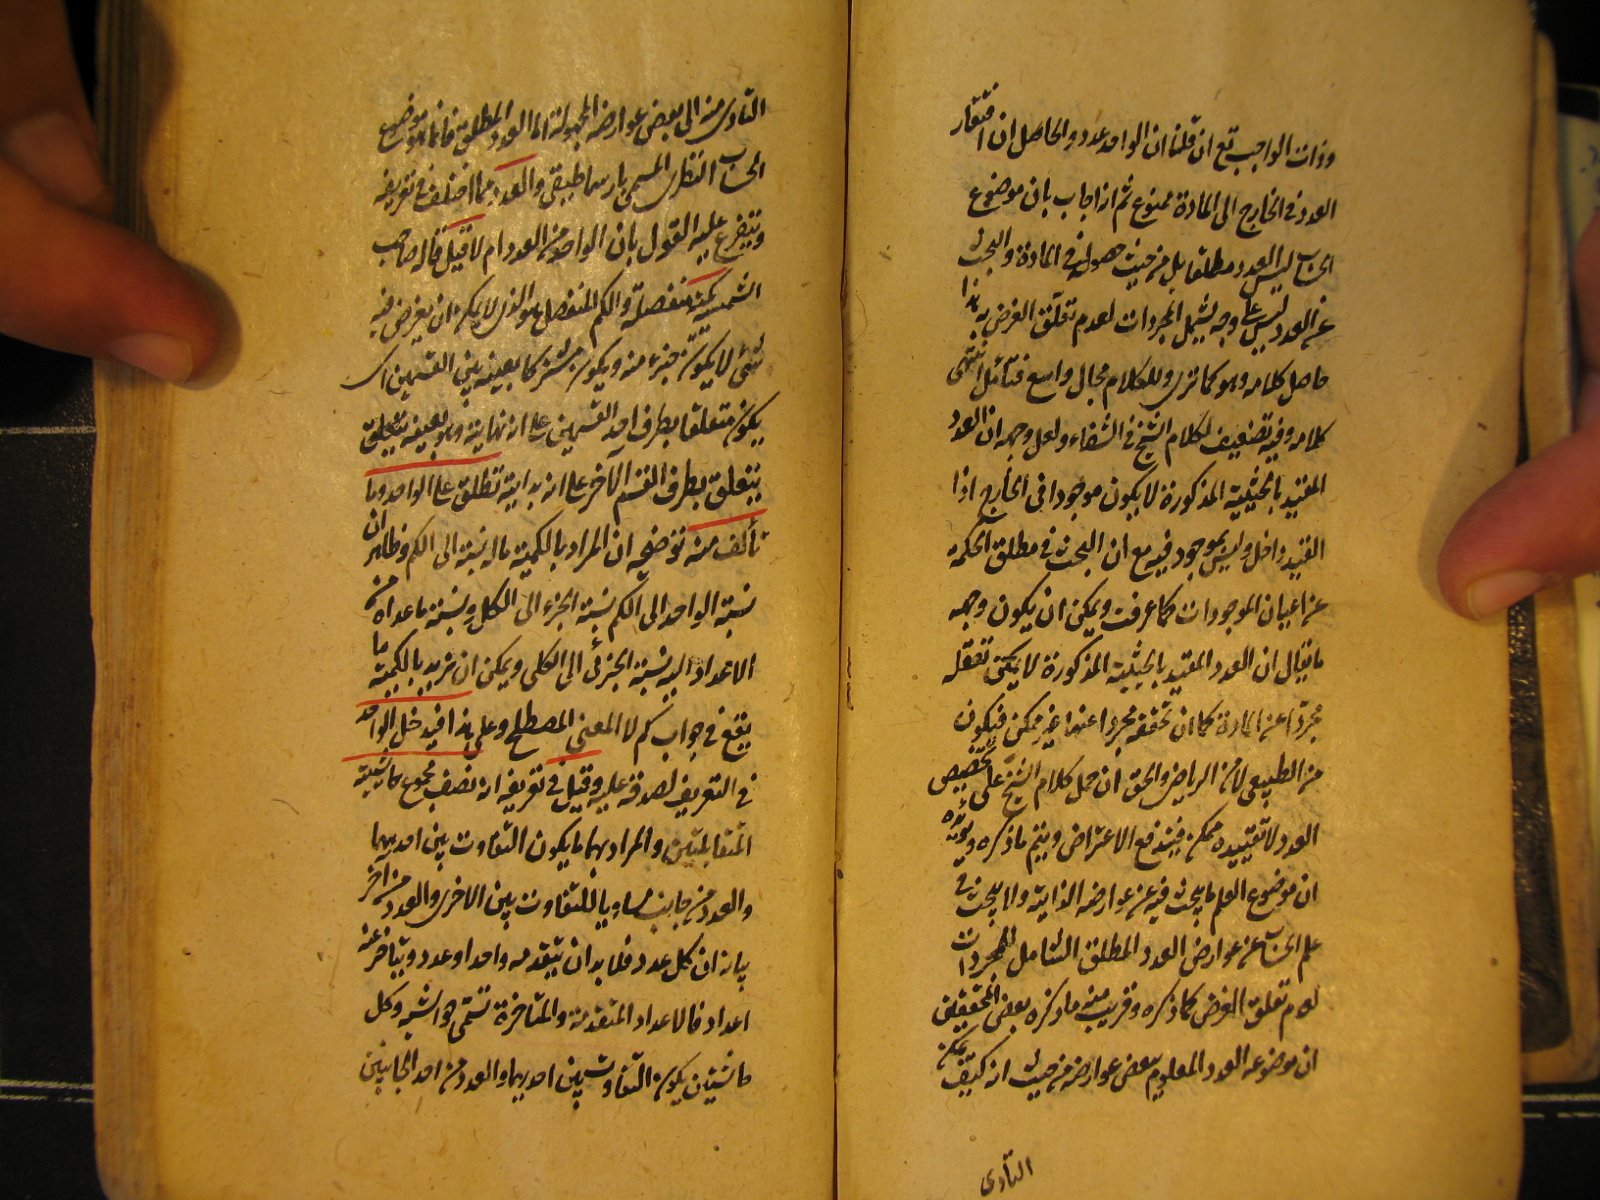 وذات الواجب تع ان قلنا ان الواحد عدد والحاصل ان افتقار
العدد في الخارج الى المادة ممنوع ثم انه اجاب بان موضوع
الحساب ليس العدد مطلقا بل من حيث حصوله في المادة والبحث
عن العدد ليس على وجه يشمل المجردات لعدم تعلق الغرض به هذا
حاصل كلامه وهو كما ترى وللكلام مجال واسع فتأمل انتهى
كلامه وفيه تضعيف لكلام الشيخ في الشفاء ولعل وجهه ان العدد
المقيد بالحيثية المذكورة لا يكون موجودا في الخارج اذا
القيد داخل وليس بموجود فيه مع ان البحث في مطلق الحكمة
عن اعيان الموجودات كما عرفت ويمكن ان يكون وجهه
ما يقال ان العدد المقيد بالحيثية المذكورة لا يمكن تعقله
مجردا عن المادة كما ان تحققه مجردا عنها غير ممكن فيكون
من الطبيعي لا من الرياضي والحق ان حمل كلام الشيخ على تخصيص
العدد لا تقييده ممكن فيندفع الاعتراض ويتم ما ذكره ويؤيده
ان موضوع العلم ما يبحث فيه عن عوارضه الذاتية ولا يبحث في
علم الحساب عن عوارض العدد المطلق الشامل للمجردات
لعدم تعلق الغرض كما ذكره وقريب منه ما ذكره بعض المحققين
ان موضوعه العدد المعلوم بعض عوارضه من حيث انه كيف يمكن
التأدى
التأدى منه الى بعض عوارضه المجهولة اما العدد المطلق فانما هو موضوع
الحساب النظرى المسمى بارسماطيقى والعدد مما اختلف في تعريفه
ويتفرع عليه القول بان الواحد من العدد ام لا قيل قاله صاحب
الشمسية كمية منفصلة والكم المنفصل هو الذى لا يمكن ان يفرض فيه
شئ لا يكون جزء منه ويكون مشتركا بعينه بين القسمين اى
يكون متعلقا بطرف احد القسمين على انه نهاية وهو بعينه يتعلق
يتعلق بطرف القسم الآخر على انه بداية تطلق على الواحد وما
تألف منه توضيحه ان المراد بالكمية ما له نسبة الى الكم وظاهر ان
نسبة الواحد الى الكم نسبة الجزء الى الكل ونسبة ما عداه من
الاعداد اليه نسبة الجزئى الى الكلى ويمكن ان يريد بالكمية ما
يقع في جواب كم لا المعنى المصطلح وعلى هذا فيدخل الواحد
في التعريف لصدقه عليه وقيل في تعريفه انه نصف مجموع حاشيتيه
المتقابلتين والمراد بهما ما يكون التفاوت بين احديهما
والعدد من جانب مساويا للتفاوت بين الاخرى والعدد من آخر
بيانه ان كل عدد فلا بد ان يتقدمه واحد او عدد ويتأخر عنه
اعداد فالاعداد المتقدمة والمتأخرة تسمى حواشيه وكل
حاشيتين يكون التفاوت بين احديهما والعدد من احد الجانبين